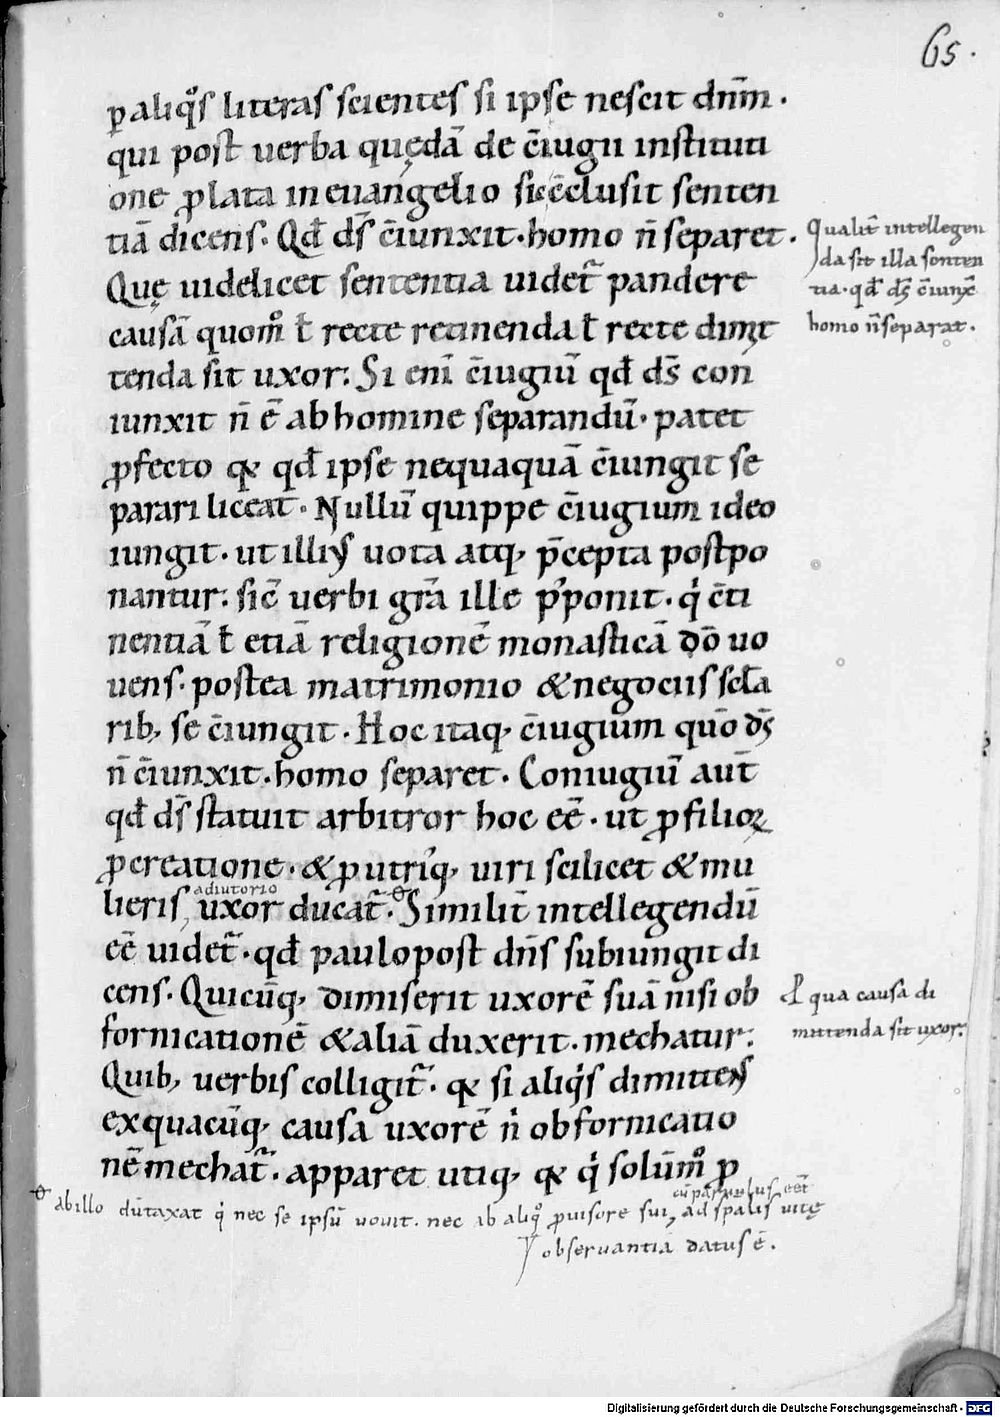 65.
p̱ aliq̊s literas scientes si ipse nescit dn̄m.
qui post uerba quędā de c̄iugii instituti
one ꝓlata in euangelio sic c̄clusit senten
tiā dicens. Qđ d̄s c̄iunxit. homo n̄ separet.
Quę uidelicet sententia uidet᷑ pandere
causā quom̊ ł recte retinenda ł recte dimit
tenda sit uxor. Si eni c̄iugiū qđ d̄s con
iunxit n̄ ē ab homine separandū. patet
ꝓfecto qͥ qđ ipse nequaquā c̄iungit se
parari liceat. Nullū quippe c̄iugium ideo
iungit. ut illiꝰ uota atq; p̄cepta postpo
nantur. sic̄ uerbi grā ille p̄ponit. qͥ c̄ti
nentiā ł etiā religionē monasticā dō uo
uens. postea matrimonio & negociis sc̄la
rib; se c̄iungit. Hoc itaq; c̄iugium quō d̄s
n̄ c̄iunxit. homo separet. Coniugiū aut̄
qđ d̄s statuit arbitror hoc eē. ut ꝓ filioꝝ
ꝓcreatione. & ꝓ utriq; uiri scilicet & mu
adiutorio
lieris, uxor ducat᷑. Similit̄ intellegendū
eē uidet᷑. qđ paulo post dn̄s subiungit di
cens. Quicūq; dimiserit uxorē suā nisi ob
fornicationē & aliā duxerit. mechatur.
Quib; uerbis colligit᷑. qͥ si aliq̊s dimittens
ex quacūq; causa uxorē n̄ ob fornicatio
nē mechat᷑. apparet utiq; qͥ qͥ solūm̊ p̱
Qualit̄ intellegen
da sit illa senten
tia. qđ d̄s c̄iunx̄
homo n̄ separat.
ꝑ qua causa di
mittenda sit uxor.
ab illo dūtaxat qͥ nec se ipsū uouit. nec ab aliq̊ ꝓuisore sui, ad sp̄alis uitę
observantiā datus ē.
Digitalisierung gefördert durch die Deutsche Forschungsgemeinschaft - DFG